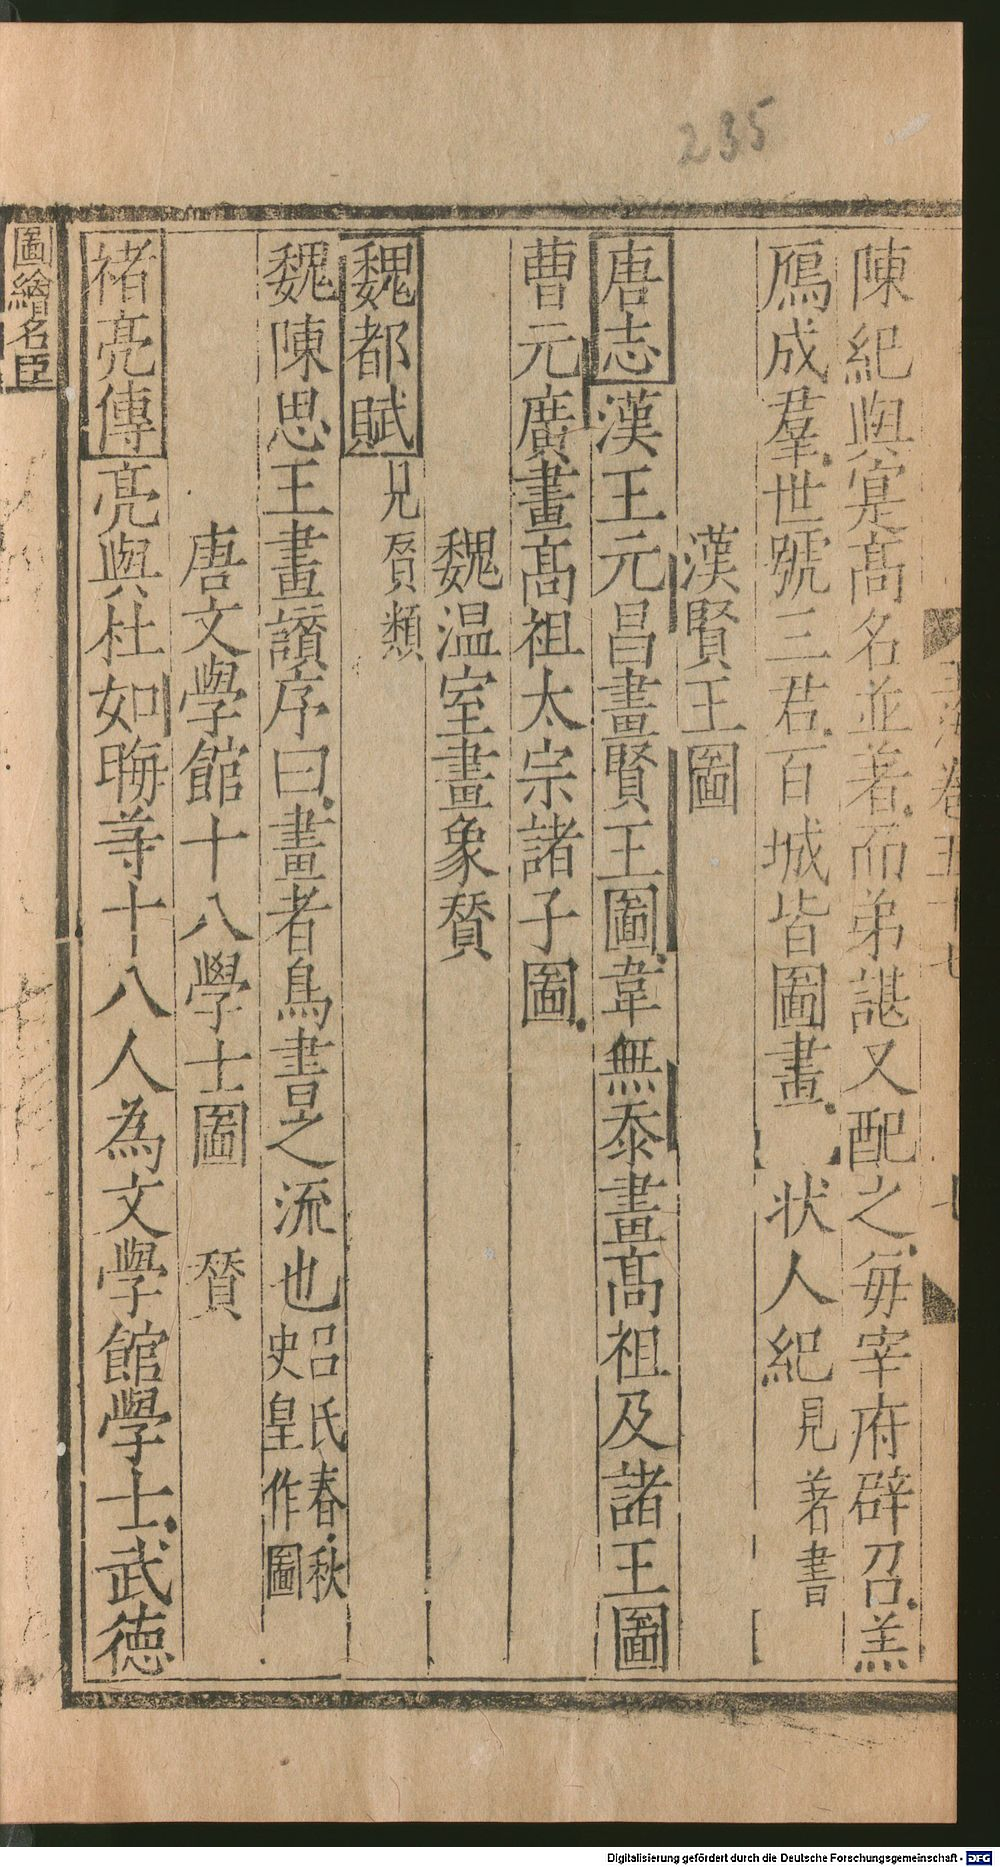 235
陳紀與寔高名並著而弟諶又配之每宰府辟召羔
鴈成羣世號三君百城皆圖畫 狀人紀見著書
漢賢王圖
唐志漢王元昌畫賢王圖韋無忝畫高祖及諸王圖
曹元廣畫高祖太宗諸子圖
魏温室畫象賛
魏都賦見賛類
魏陳思王畫讃序曰畫者鳥書之流也吕氏春秋史皇作圖
唐文學館十八學士圖 賛
禇亮傳亮與杜如晦等十八人為文學館學士武德
圖繪名臣
Digitalisierung gefördert durch die Deutsche Forschungsgemeinschaft - DFG